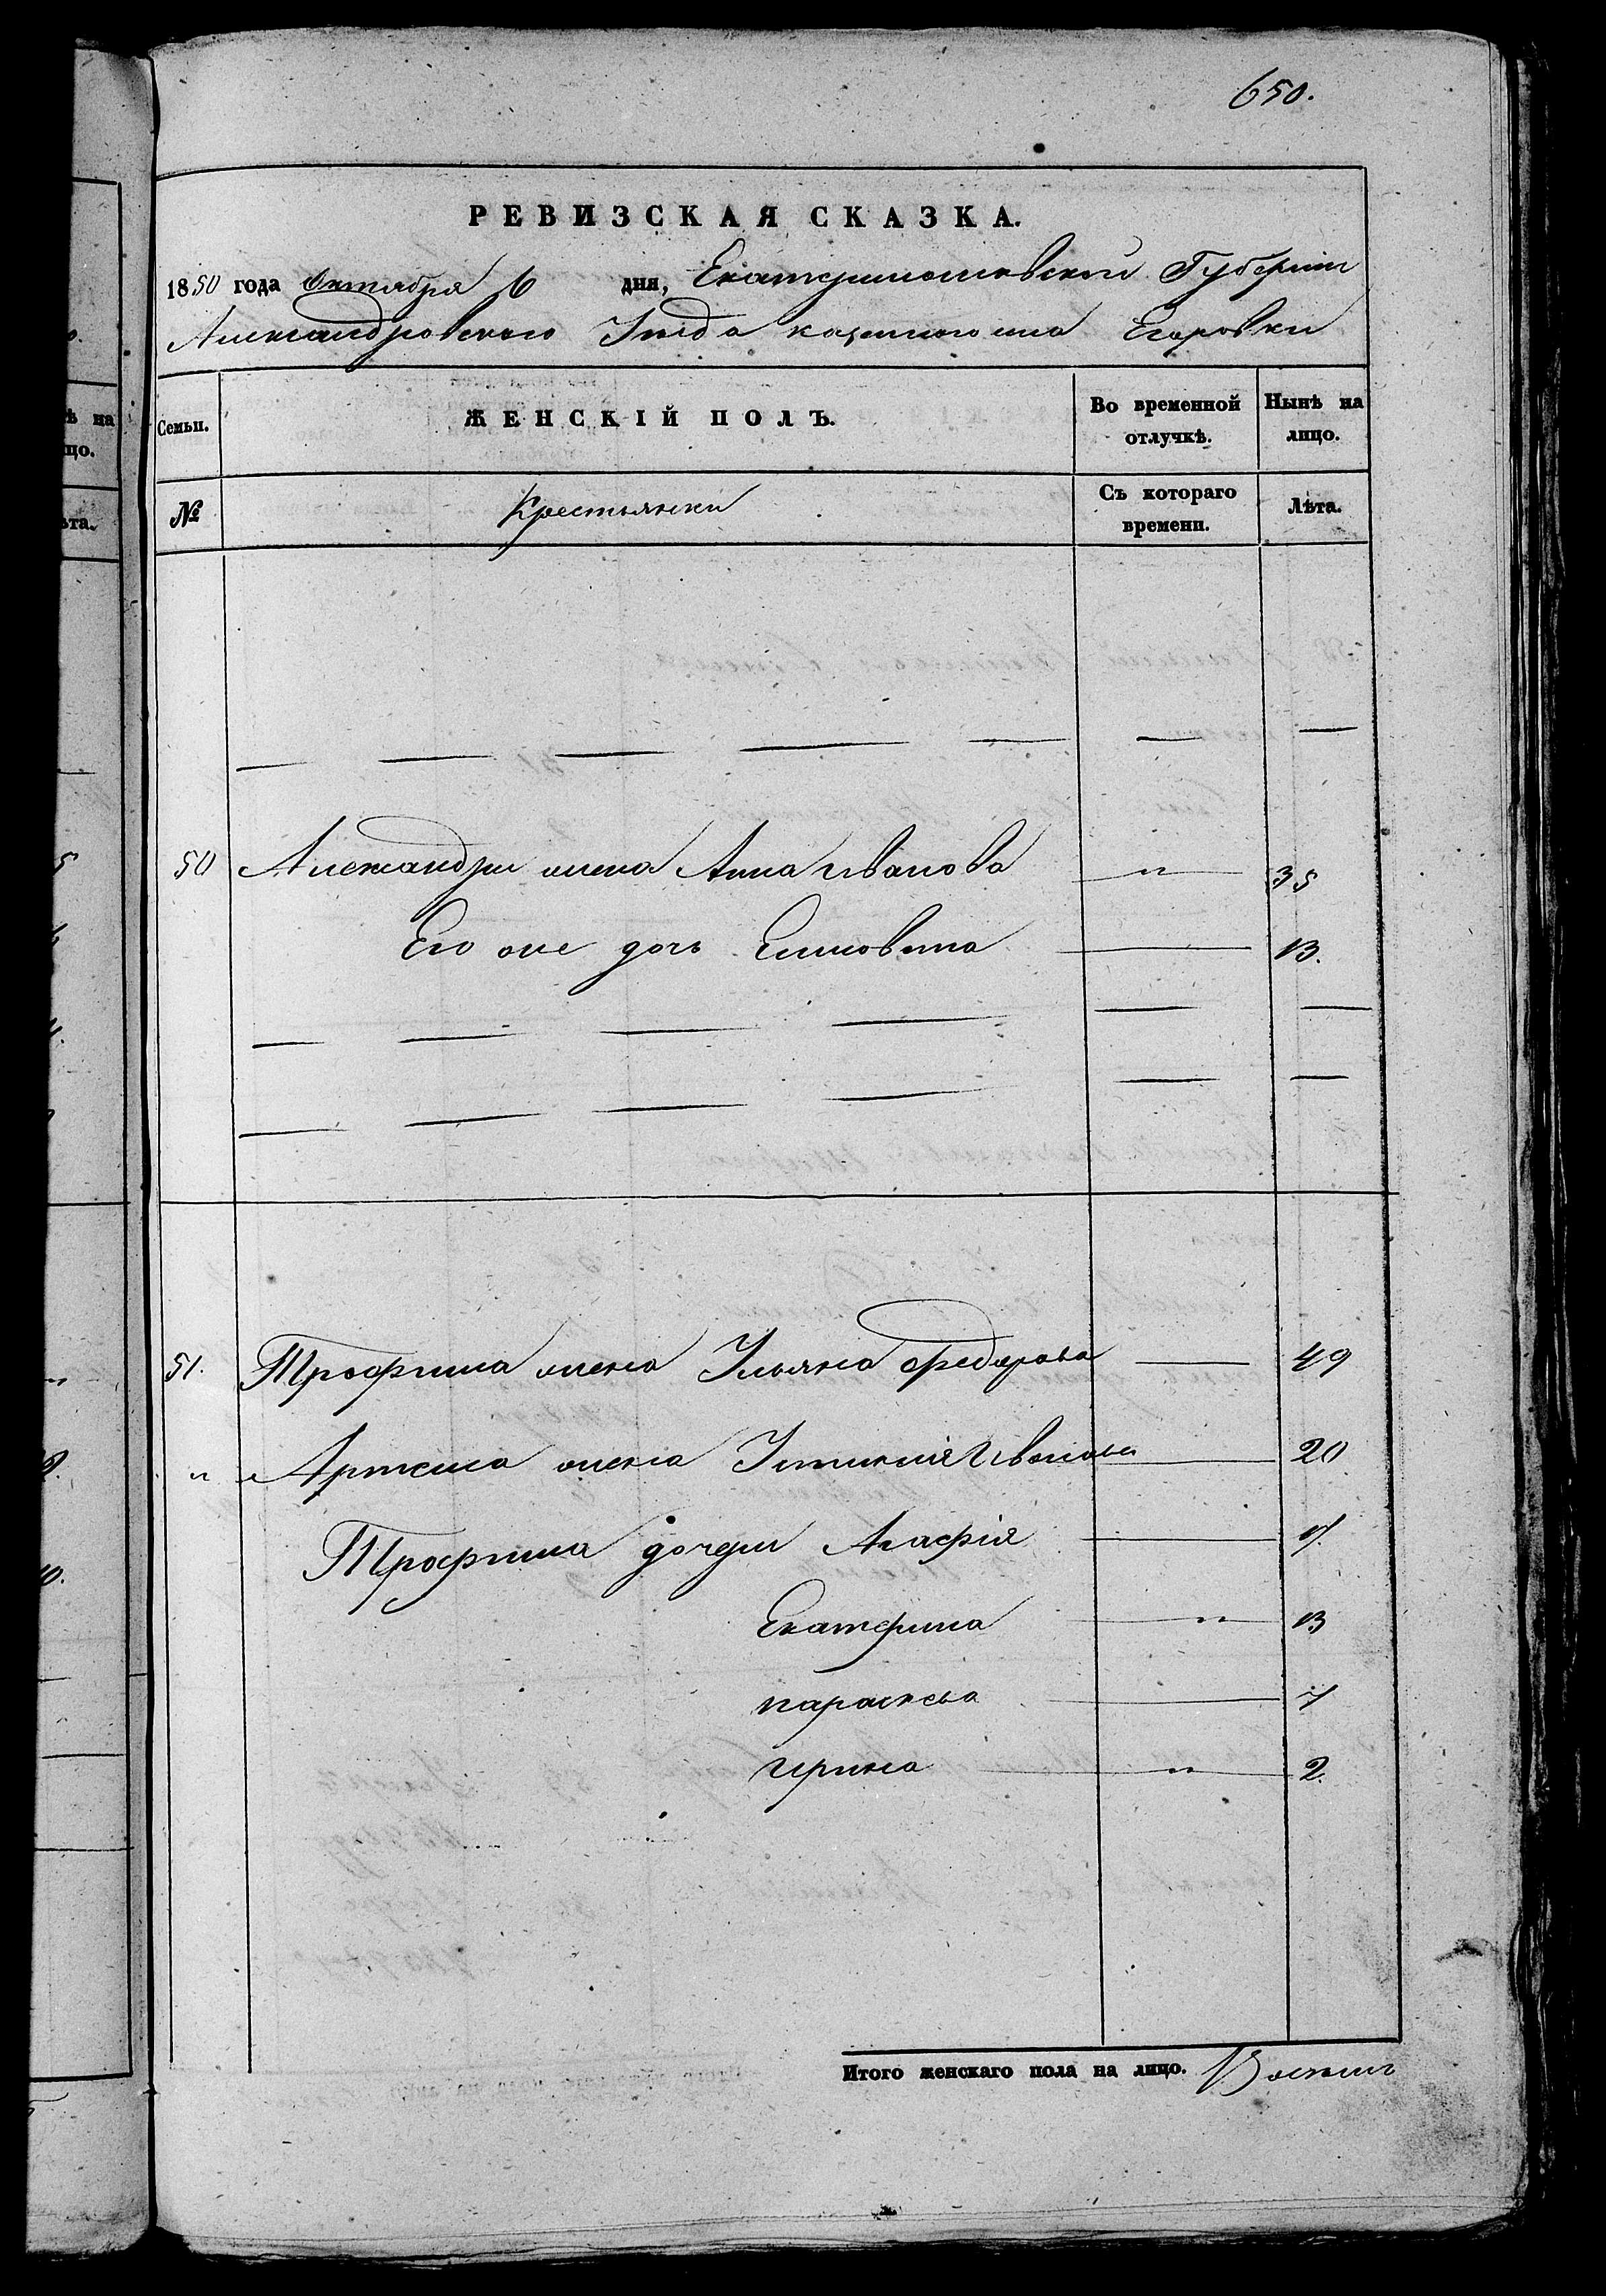 650.
РЕВИЗСКАЯ СКАЗКА.
1850 года Октября 6 дня, Екатеринославской Губернии
Александровского Уезда казенного села Егоровки
Семьи. ЖЕНСКІЙ ПОЛЪ. Во временной отлучкѣ. Нынѣ на лицо.
№ Крестьянки Съ котораго времени. Лѣта.
50 Александра жена Анна Иванова " 35
Его же дочь Елисовета 13.
51. Трофима жена Ульяна Федорова 49
" Артема жена Устинія Иванова 20
Трофима дочери Агафія 17.
Екатерина " 13
параскева 7
ирина " 2.
Итого женскаго пола на лицо. Восемь